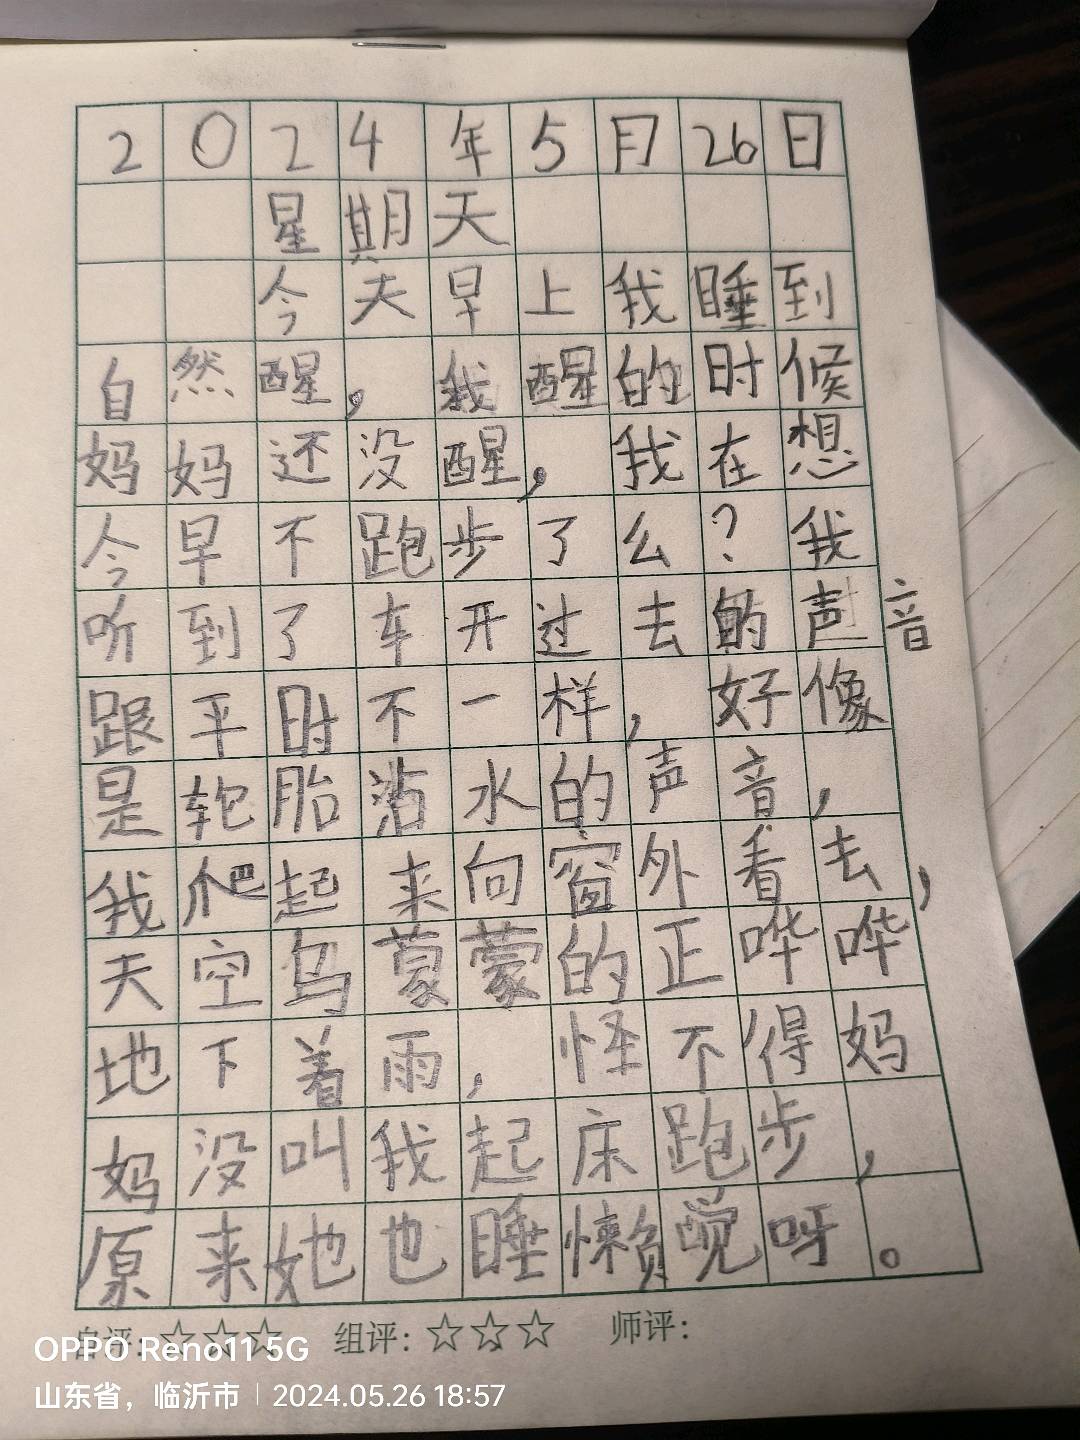 2024年5月26日
星期天
今天早上我睡到
自然醒，我醒的时候
妈妈还没醒，我在想
今早不跑步了么？我
听到了车开过去的声音
跟平时不一样，好像
是轮胎沾水的声音，
我爬起来向窗外看去，
天空乌蒙蒙的正哗哗
地下着雨，怪不得妈
妈没叫我起床跑步，
原来她也睡懒觉呀。
自评：☆☆☆ 组评：☆☆☆ 师评：
OPPO Reno11 5G
山东省，临沂市 | 2024.05.26 18:57